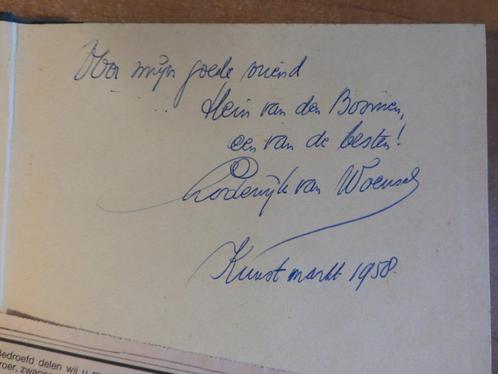 Voor mijn goede vriend
Hein van den Boomen,
een van de besten!
Lodewijk van Woensel
Kunstmarkt 1958.
Bedroefd delen wij u
roer, zwager